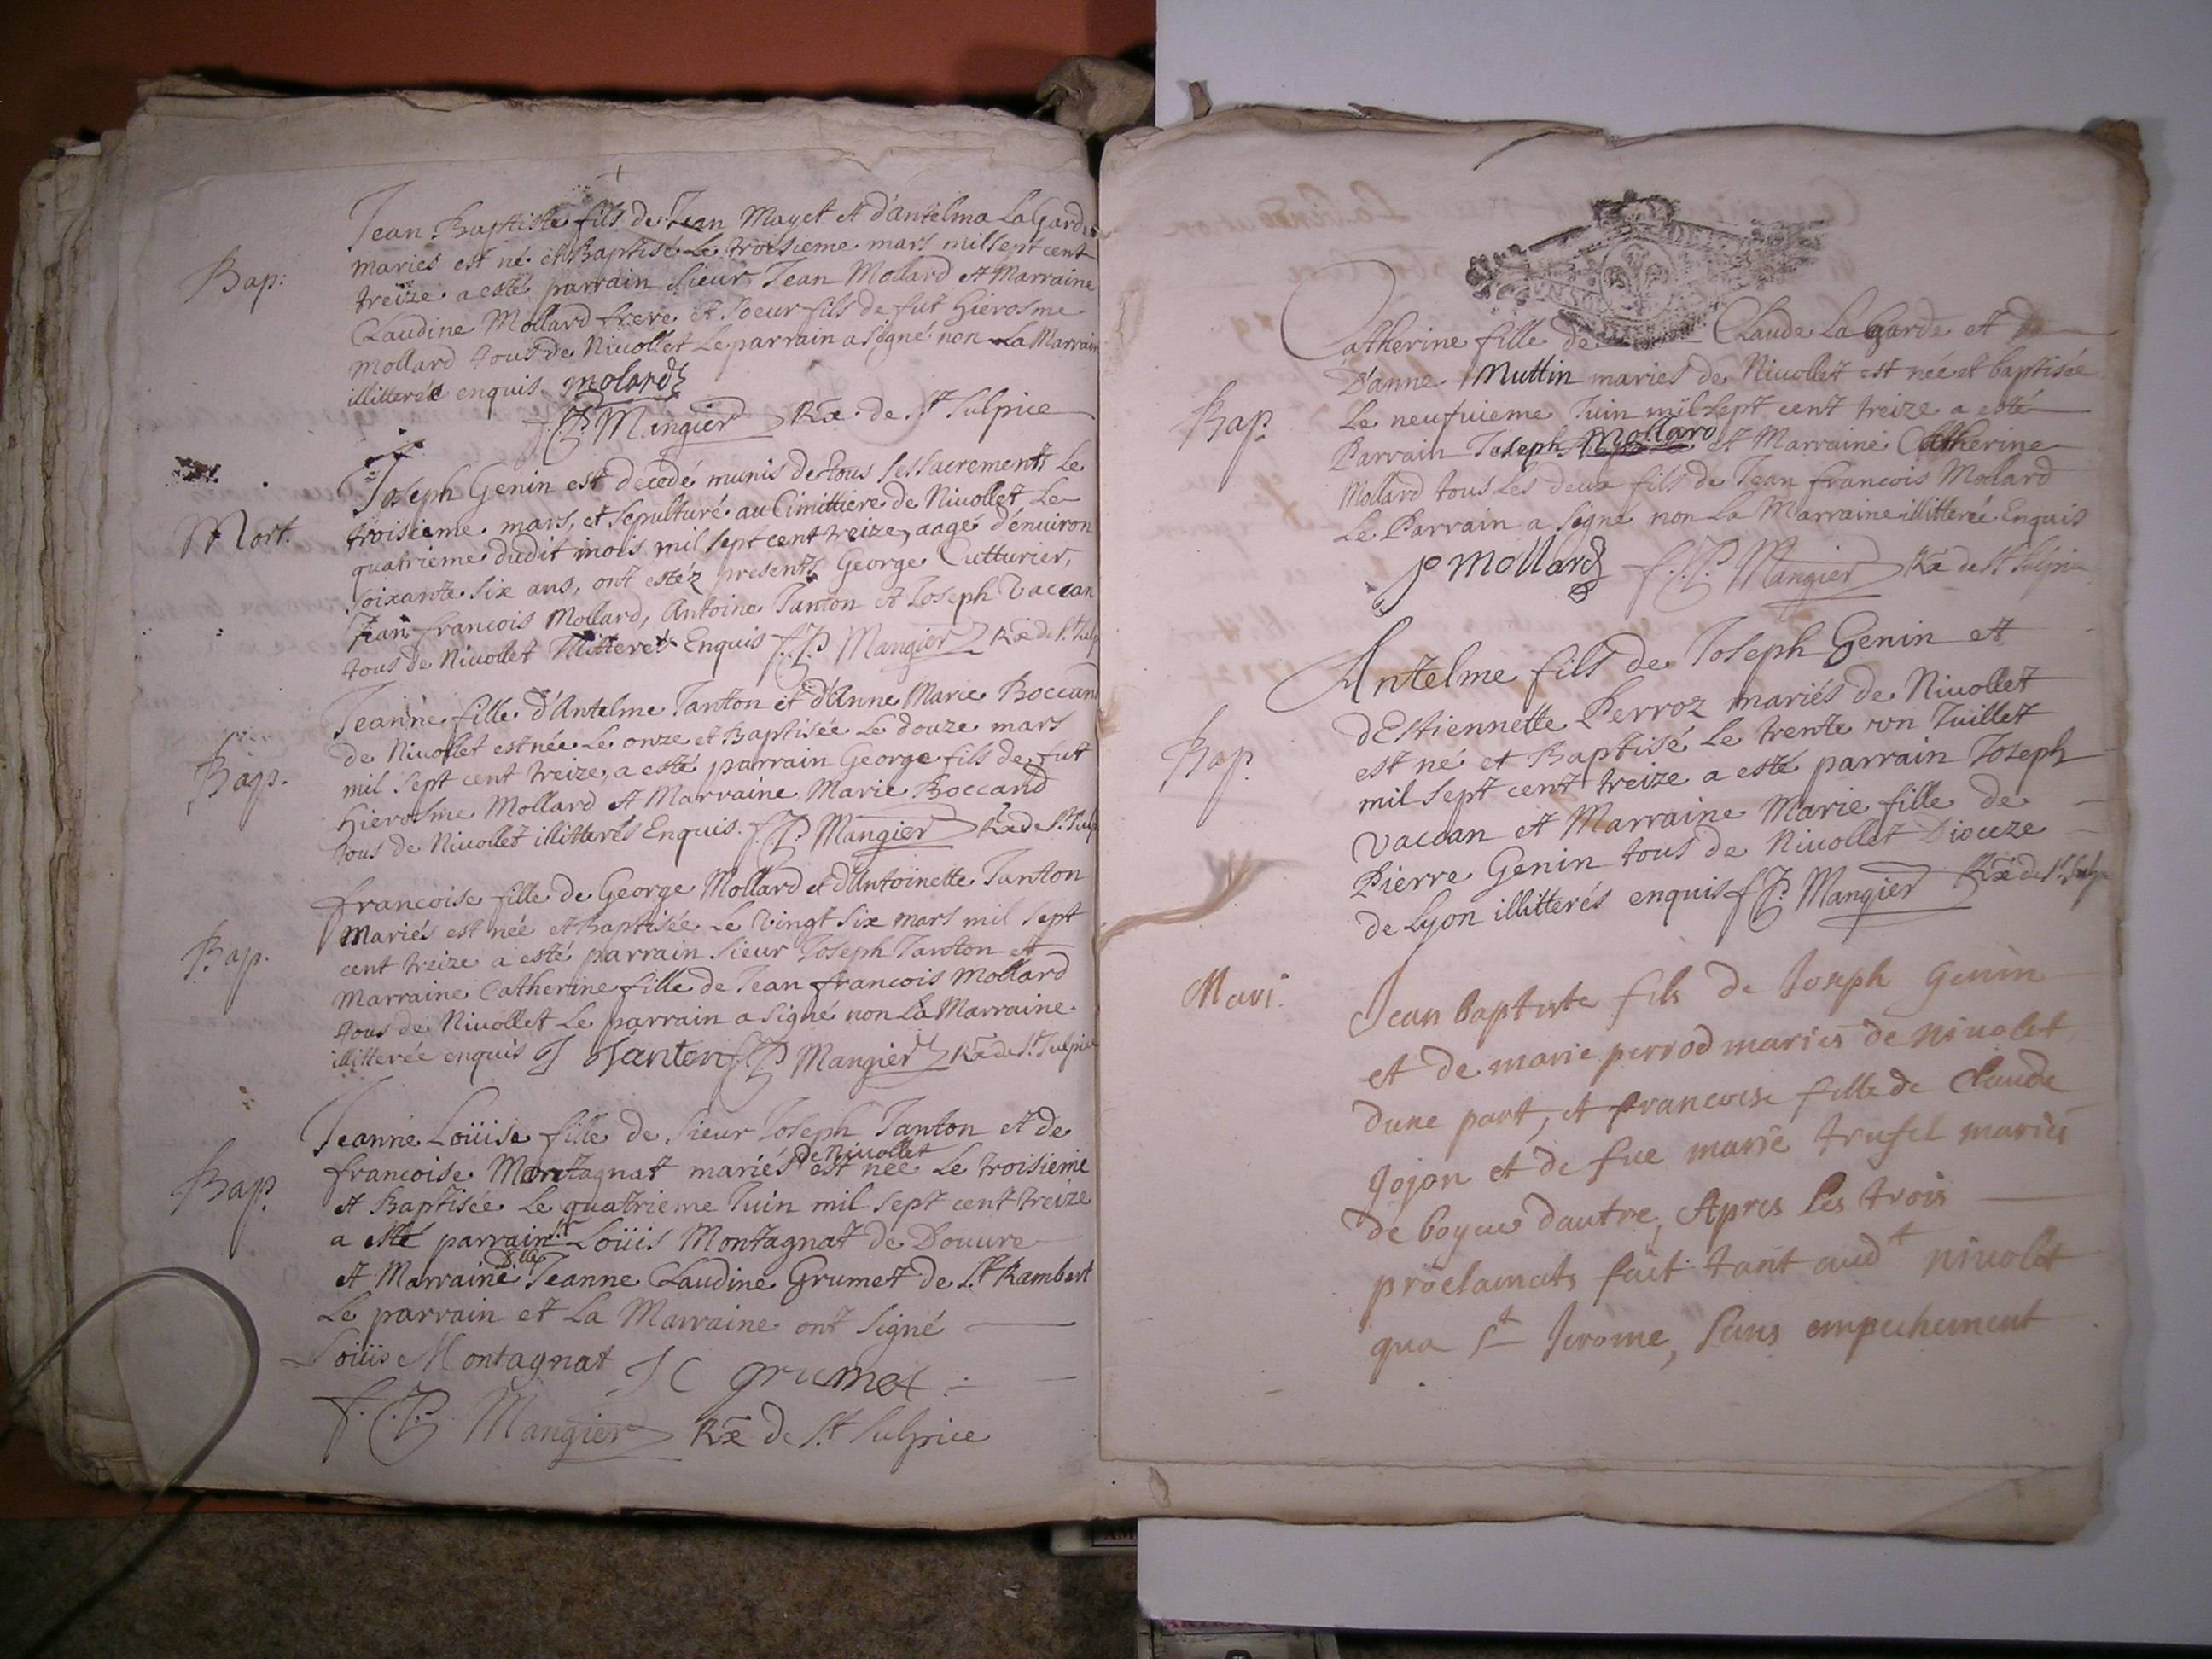 Jean Baptiste fils de Jean Mayet et d'antelma La Garde
Bap: mariés est né et Baptisé Le troisieme mars mil sept cent
treize a esté parrain sieur Jean Mollard et Marraine
Claudine Mollard frere et soeur fils de fut Hierosme
Mollard tous de Niuollet Le parrain a signé non La Marraine
illitterée enquis molard
f. P. Mangier Rx de St Sulpice
Joseph Genin est decedé munis de tous ses sacrements Le
Mort. troisieme mars, et sepulturé au Cimittiere de Niuollet Le
quatrieme dudit mois mil sept cent treize, aagé d'enuiron
soixante six ans, ont estéz presents George Cutturier,
Jean francois Mollard, Antoine Tanton et Joseph Vaccan
tous de Niuollet Illitterés Enquis f. P. Mangier Rx de St Sulp
Jeanne fille d'Antelme Tanton et d'Anne Marie Boccand
Bap. de Niuollet est née Le onze et Baptisée Le douze mars
mil sept cent treize, a esté parrain George fils de fut
Hierosme Mollard et Marraine Marie Boccand
tous de Niuollet illitterés Enquis. f. P. Mangier Rx de St Sulp
francoise fille de George Mollard et d'Antoinette Tanton
Bap. Mariés est née et Baptisée Le Vingt six mars mil sept
cent treize a esté parrain sieur Joseph Tanton et
Marraine Catherine fille de Jean francois Mollard
tous de Niuollet Le parrain a signé non La Marraine
illitterée enquis J Tanton f. P. Mangier Rx de St Sulpice
Jeanne Loüise fille de sieur Joseph Tanton et de
de Niuollet
Bap. francoise Montagnat mariés est née Le troisieme
et Baptisée Le quatrieme Juin mil sept cent treize
a esté parrain Sr Loüis Montagnat de Douure
et Marraine Dlle Jeanne Claudine Grumet de St Rambert
Le parrain et La Marraine ont signé
Loüis Montagnat J C grumet
f. P. Mangier Rx de St Sulpice
Catherine fille de Claude La Garde et de
D'anne Muttin mariés de Niuollet est née et baptisée
Bap. Le neufuieme Juin mil sept cent treize a esté
Parrain Joseph Mollard et Marraine Catherine
Mollard tous Les deux fils de Jean francois Mollard
Le Parrain a signé non La Marraine illitterée Enquis
J Mollard f. P. Mangier Rx de St Sulpice
Antelme fils de Joseph Genin et
d'Estiennette Perroz mariés de Niuollet
Bap. est né et Baptisé Le trente un Juillet
mil sept cent treize a esté parrain Joseph
Vaccan et Marraine Marie fille de
Pierre Genin tous de Niuollet Dioceze
de Lyon illitterés enquis f. P. Mangier Rx de St Sulp
Mari. Jean baptiste fils de Joseph Genin
et de marie perrod mariés de niuolet
dune part, et francoise fille de Claude
Jojon et de fue marie trufel mariés
de boyeu dautre, Apres Les trois
proclamats fait tant audt niuolet
qua St Jerome, sans empechement